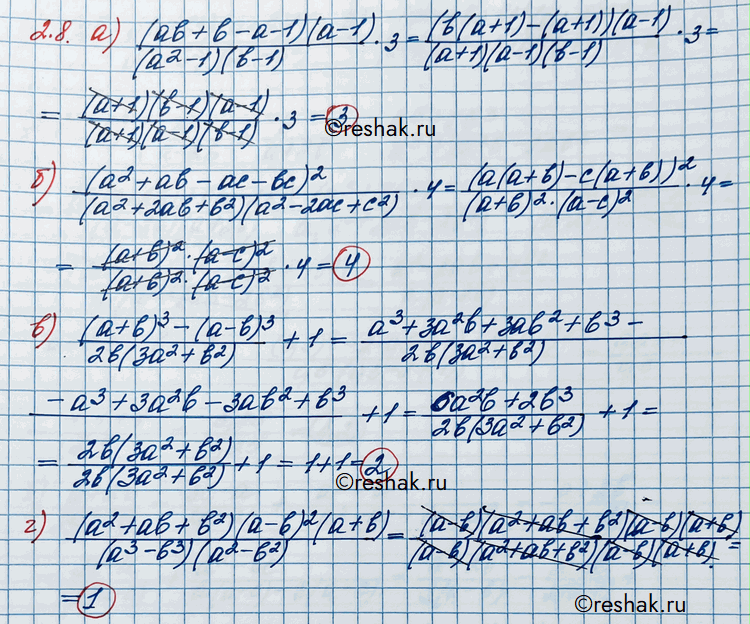 2.8. а) (ab + b - a - 1)(a - 1) / (a² - 1)(b - 1) · 3 = (b(a+1) - (a+1))(a-1) / (a+1)(a-1)(b-1) · 3 =
= (a+1)(b-1)(a-1) / (a+1)(a-1)(b-1) · 3 = 3
©reshak.ru
б) (a² + ab - ac - bc)² / (a² + 2ab + b²)(a² - 2ac + c²) · 4 = (a(a+b) - c(a+b))² / (a+b)² · (a-c)² · 4 =
= (a+b)² · (a-c)² / (a+b)² · (a-c)² · 4 = 4
в) (a+b)³ - (a-b)³ / 2b(3a² + b²) + 1 = a³ + 3a²b + 3ab² + b³ - / 2b(3a² + b²)
- a³ + 3a²b - 3ab² + b³ / + 1 = 6a²b + 2b³ / 2b(3a² + b²) + 1 =
= 2b(3a² + b²) / 2b(3a² + b²) + 1 = 1 + 1 = 2
©reshak.ru
г) (a² + ab + b²)(a-b)²(a+b) / (a³ - b³)(a² - b²) = (a-b)(a² + ab + b²)(a-b)(a+b) / (a-b)(a² + ab + b²)(a-b)(a+b) =
= 1
©reshak.ru